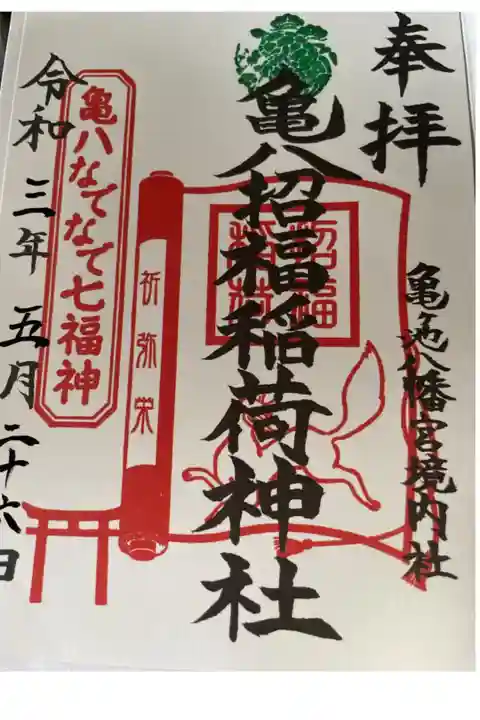 奉拝
亀ヶ池八幡宮境内社
亀八招福稲荷神社
招福
稲荷
祈弥栄
亀八なでなで七福神
令和三年五月二十六日